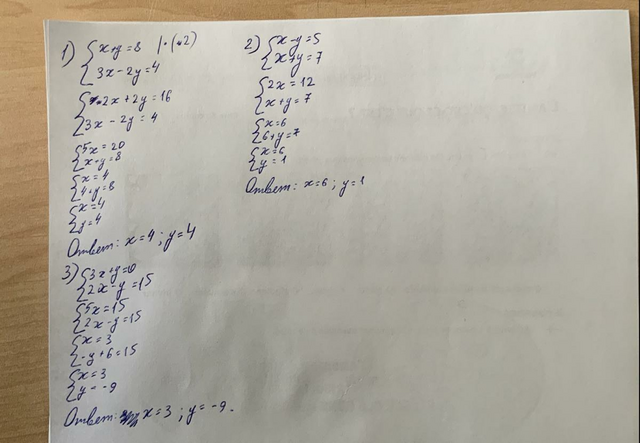 1) { x+y=8 |·(·2)
3x-2y=4
{ 2x+2y=16
3x-2y=4
{ 5x=20
x+y=8
{ x=4
4+y=8
{ x=4
y=4
Ответ: x=4; y=4
2) { x-y=5
x+y=7
{ 2x=12
x+y=7
{ x=6
6+y=7
{ x=6
y=1
Ответ: x=6; y=1
3) { 3x+y=0
2x-y=15
{ 5x=15
2x-y=15
{ x=3
-y+6=15
{ x=3
y=-9
Ответ: x=3; y=-9.